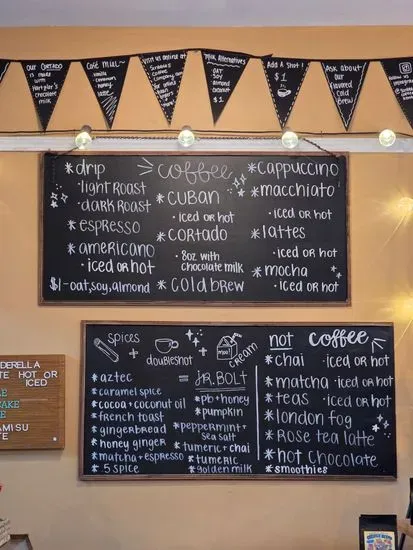 our CORTADO
is made with
Hartzler's
chocolate
milk
Café Miel~
vanilla
cinnamon
honey
latte
visit us online at
company
.com
Milk Alternatives
OAT
SOY
almond
coconut
$1
Add A Shot!
$1
Ask about
our
flavored
cold
Brew
*drip
·light Roast
·dark Roast
*espresso
*americano
·iced or hot
$1-oat, soy, almond
coffee
*CUBAN
·iced or hot
*CORTADO
·8oz with
chocolate milk
*cold brew
*cappuccino
*macchiato
·iced or hot
*lattes
·iced or hot
*mocha
·iced or hot
spices
+
doubleshot
+
moo!
cream
= JR. BOLT
*aztec
*caramel spice
*cocoa + coconut oil
*french toast
*gingerbread
*honey ginger
*matcha + espresso
*5 spice
*pb + honey
*pumpkin
*peppermint +
sea salt
*tumeric + chai
*tumeric
*golden milk
not coffee
*chai ·iced or hot
*matcha ·iced or hot
*teas ·iced or hot
*london fog
*Rose tea latte
*hot chocolate
*smoothies
DERELLA
TE HOT OR
ICED
LE
CAKE
E
AMISU
TE